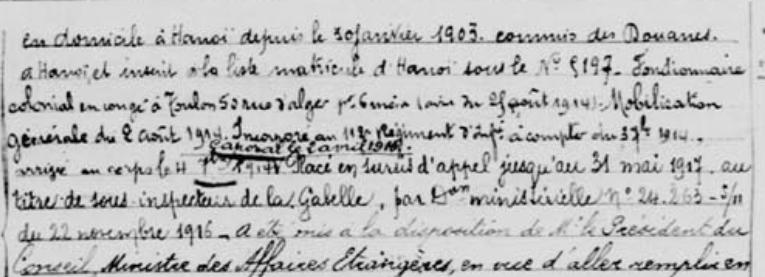 en domicile à Hanoï depuis le 10 janvier 1903. commis des Douanes.
à Hanoï, et inscrit à la liste matricule d'Hanoï sous le N° 5197. Fonctionnaire
colonial en congé à Toulon 50 rue d'alger pr 6 mois (avis du août 1914). Mobilisation
générale du 2 août 1914. Incorporé au 112e Régiment d'Inftie à compter du 3 7bre 1914.
Caporal le 2 avril 1915.
arrivé au corps le 4 7bre 1914. Placé en sursis d'appel jusqu'au 31 mai 1917. au
titre de sous inspecteur de la Gabelle, par Don ministérielle N° 24.263 - 3/11
du 22 novembre 1916 _ A été mis à la disposition de Mr le Président du
Conseil, Ministre des Affaires Etrangères, en vue d'aller remplir en